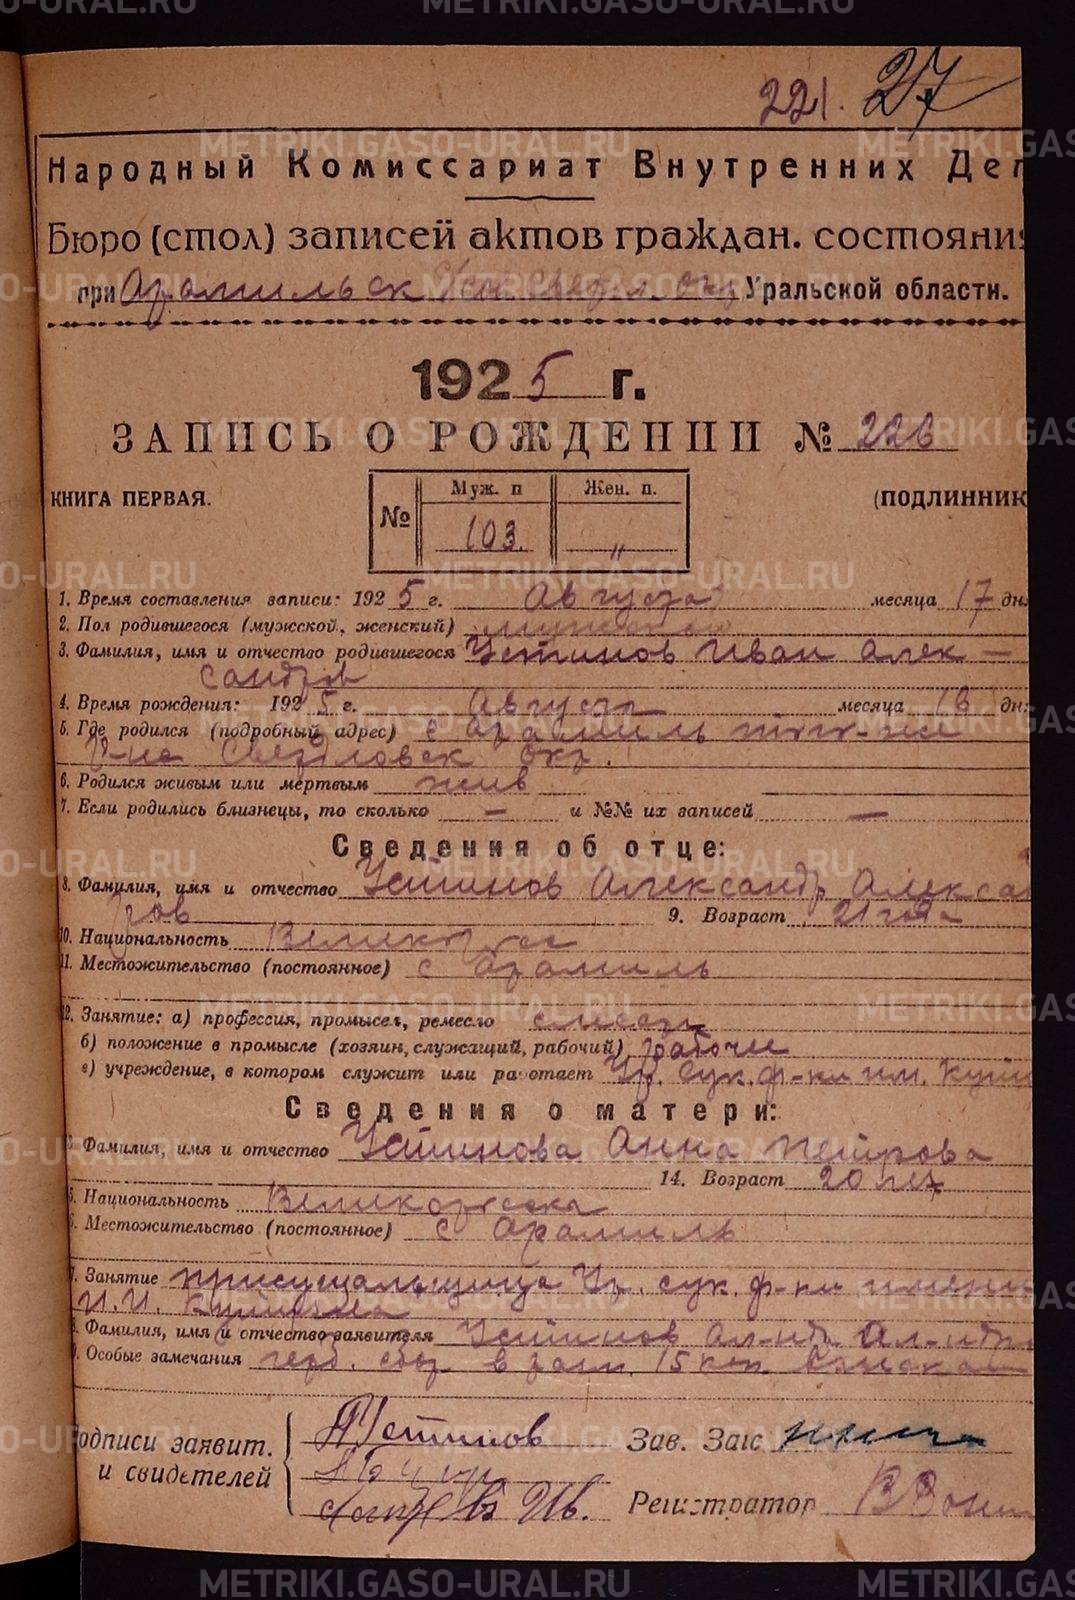 221. 27
Народный Комиссариат Внутренних Дел
Бюро (стол) записей актов граждан. состояния
при Арамильск Уральской области.
1925 г.
ЗАПИСЬ О РОЖДЕНИИ № 226
КНИГА ПЕРВАЯ. (ПОДЛИННИК
№ Муж. п Жен. п.
103. "
1. Время составления записи: 1925 г. Августа месяца 17 дня
2. Пол родившегося (мужской, женский) мужской
3. Фамилия, имя и отчество родившегося Устинов Иван Алек-
сандров
4. Время рождения: 1925 г. Августа месяца 16 дня
5. Где родился (подробный адрес) с Арамиль того-же
Р-на Свердловск Окр.
6. Родился живым или мертвым жив
7. Если родились близнецы, то сколько — и №№ их записей —
Сведения об отце:
8. Фамилия, имя и отчество Устинов Александр Алексан
дров 9. Возраст 21 года
10. Национальность Великорус
11. Местожительство (постоянное) с Арамиль
12. Занятие: а) профессия, промысел, ремесло слесарь
б) положение в промысле (хозяин, служащий, рабочий) рабочий
в) учреждение, в котором служит или работает Ар. сук. ф-ки им.
Сведения о матери:
Фамилия, имя и отчество Устинова Анна Петрова
14. Возраст 20 лет
5. Национальность Великорусска
Местожительство (постоянное) с Арамиль
Занятие присучальщица Ар. сук. ф-ки имени
И.И.
Фамилия, имя и отчество заявителя Устинов Ал-ндр Ал-ндр
Особые замечания герб. сбор в разм. 15 коп. взыскан
одписи заявит. Устинов Зав. Загс
и свидетелей
Регистратор
METRIKI.GASO-URAL.RU